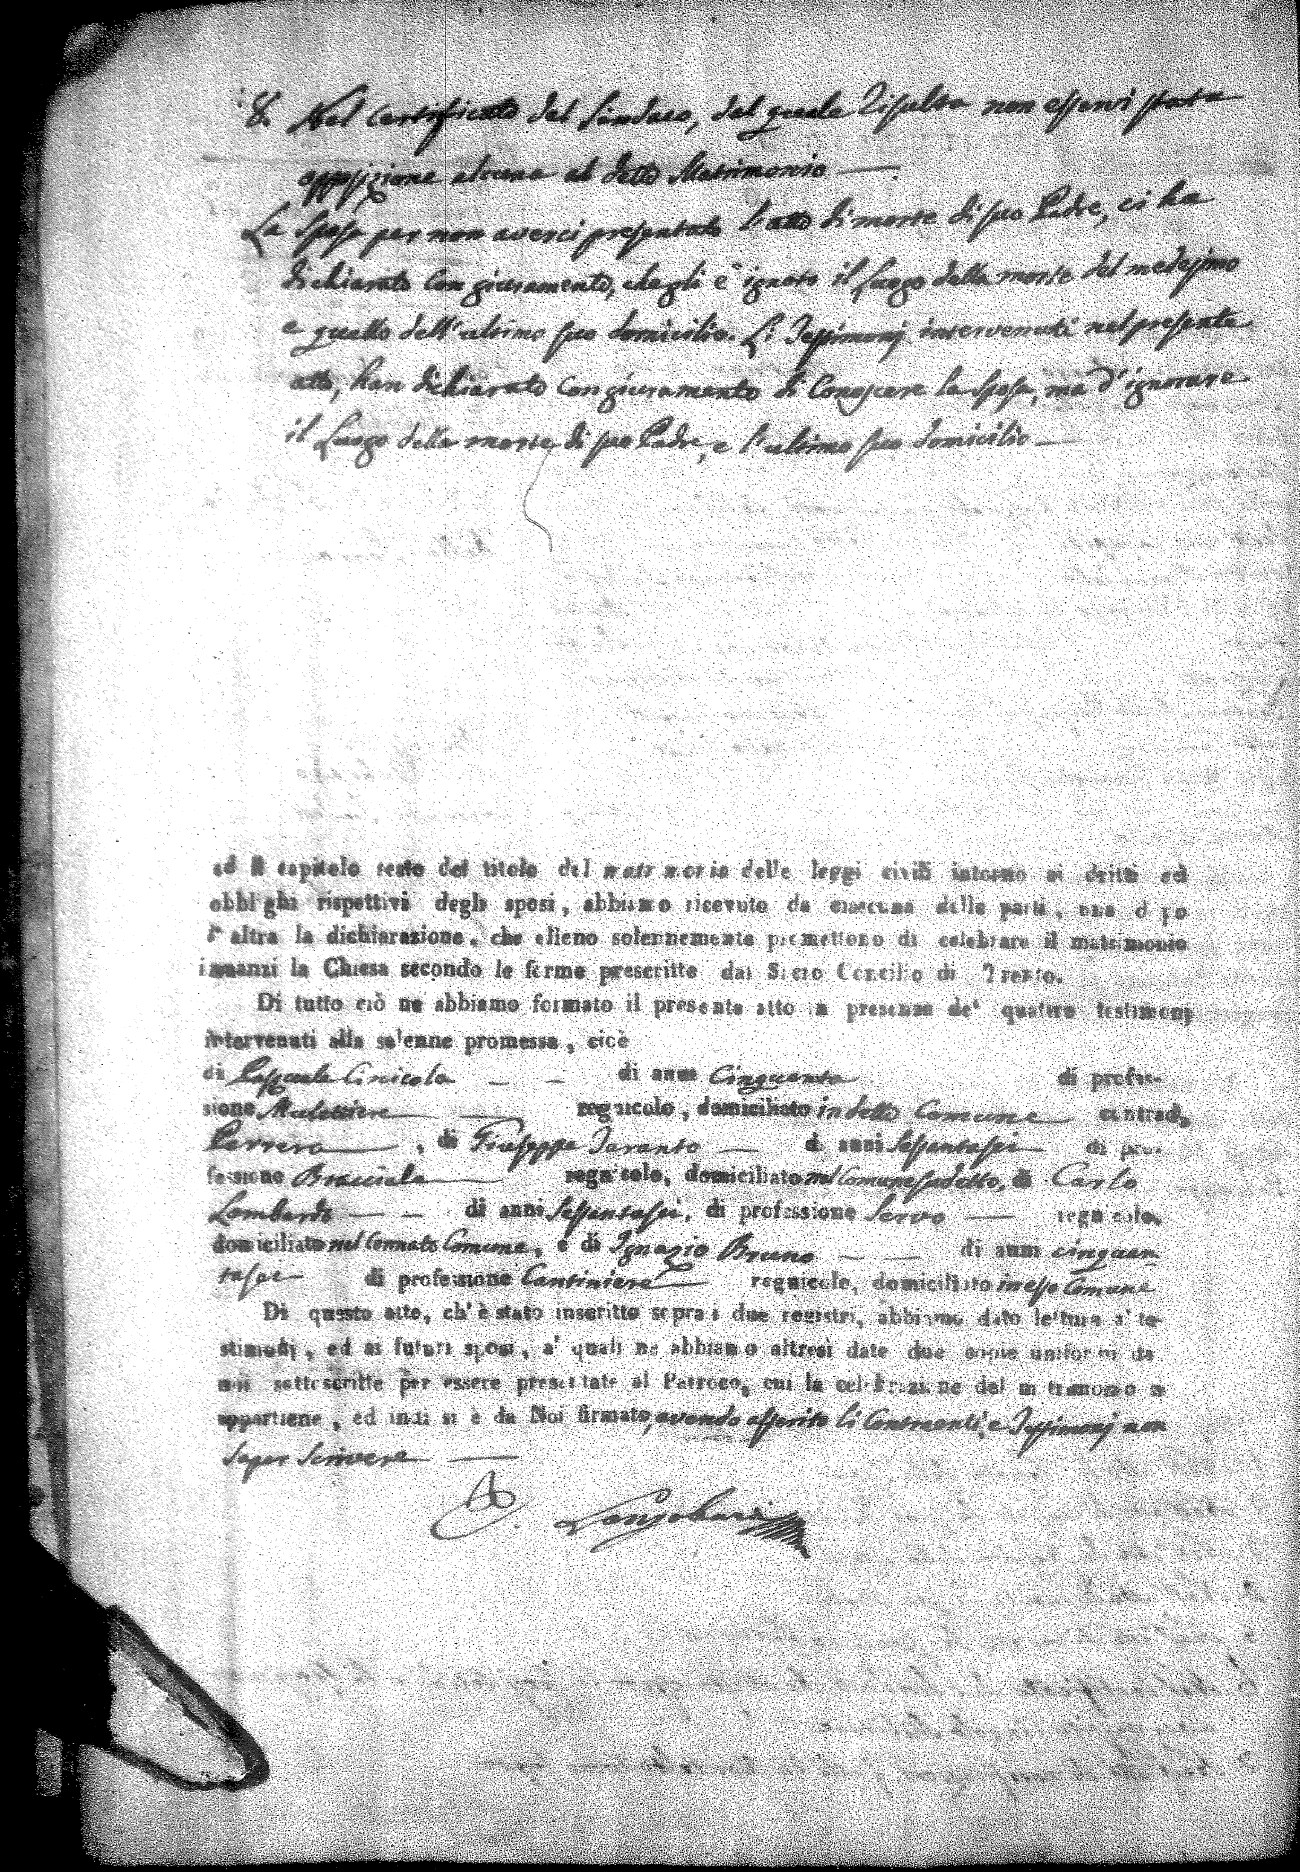 8. Nel certificato del Sindaco, dal quale Risulta non esservi stata
opposizione alcuna al detto Matrimonio —.
La Sposa per non averci presentato l'atto di morte di suo Padre, ci ha
dichiarato con giuramento, che gli è ignoto il luogo della morte del medesimo
e quello dell'ultimo suo domicilio. Li Testimonj intervenuti nel presente
atto, han dichiarato con giuramento di conoscere la sposa, ma d'ignorare
il luogo della morte di suo Padre, e l'ultimo suo domicilio —
ed il capitolo sesto del titolo del matrimonio delle leggi civili intorno ai dritti ed
obblighi rispettivi degli sposi, abbiamo ricevuto da ciascuna delle parti, una dopo
l'altra la dichiarazione, che elleno solennemente promettono di celebrare il matrimonio
innanzi la Chiesa secondo le forme prescritte dal Sacro Concilio di Trento.
Di tutto ciò ne abbiamo formato il presente atto in presenza de' quattro testimonj
intervenuti alla solenne promessa, cioè
di Pasquale Cinicola — — di anni Cinquanta di profes-
sione Mulattiere — — regnicolo, domiciliato in detto Comune contrada
Parrera —, di Giuseppe Taranto — di anni Sessantasei di pro-
fessione Bracciale — regnicolo, domiciliato nel Comune sudetto, di Carlo
Lombardi — — di anni Sessantasei, di professione Servo — regnicolo,
domiciliato nel Connato Comune, e di Ignazio Bruno — — di anni cinquan
tasei — di professione Cantiniere — regnicolo, domiciliato in esso Comune
Di questo atto, ch'è stato inscritto sopra i due registri, abbiamo dato lettura a' te-
stimonj, ed ai futuri sposi, a' quali ne abbiamo altresì date due copie uniformi da
noi sottoscritte per essere presentate al Parroco, cui la celebrazione del matrimonio si
appartiene, ed indi si è da Noi firmato, avendo asserito li Contraenti, e Testimonj non
saper scrivere —